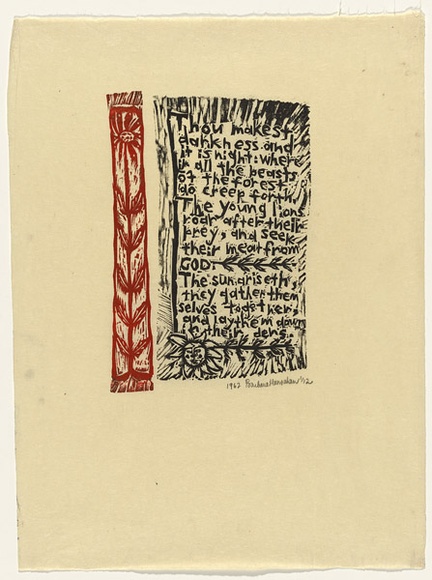 Thou makest
darkness and
it is night: where
in all the beasts
of the forest
do creep forth.
The young lions
roar after their
prey, and seek
their meat from
GOD.
The sun ariseth,
they gather them
selves together,
and lay them down
in their dens.
1962 Barbara Hanrahan 1/12